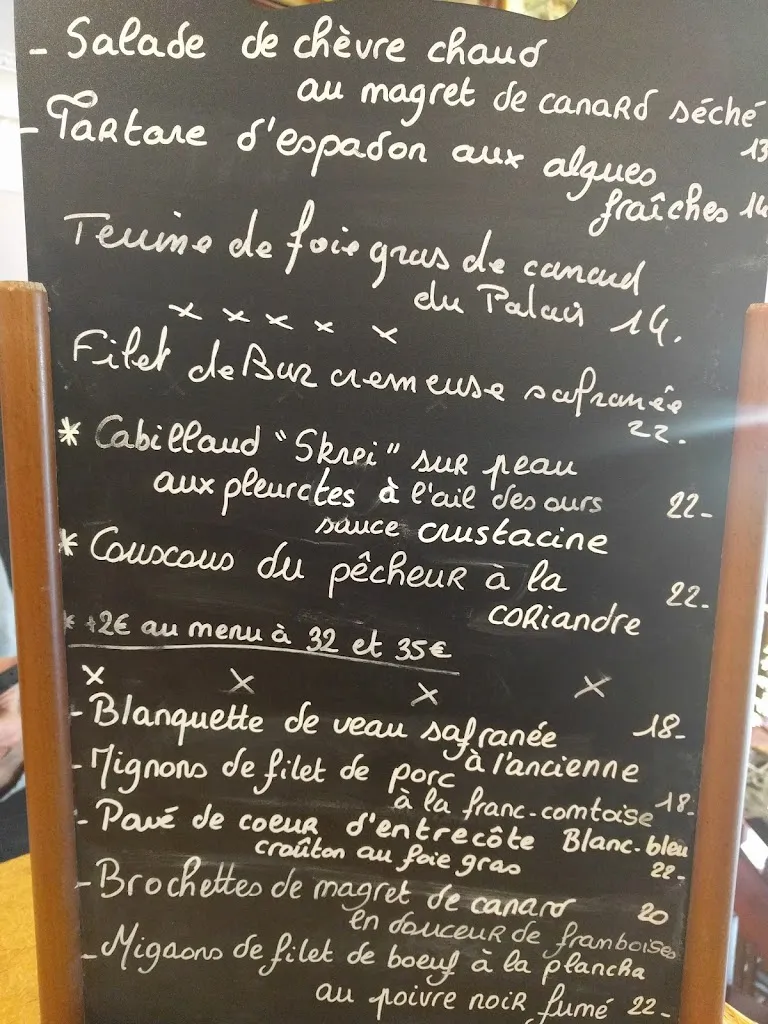 - Salade de chèvre chaud
au magret de canard séché
13
- Tartare d'espadon aux algues
fraîches 14
Terrine de foie gras de canard
du Palais 14.
x x x x x
Filet de Bar cremeuse safranée
22.
* Cabillaud "Skrei" sur peau
aux pleurotes à l'ail des ours 22-
sauce crustacine
* Couscous du pêcheur à la
coriandre 22-
* +2€ au menu à 32 et 35€
x x x x
- Blanquette de veau safranée 18-
à l'ancienne
- Mignons de filet de porc
à la franc-comtoise 18-
- Pavé de coeur d'entrecôte Blanc-bleu
croûton au foie gras 22-
- Brochettes de magret de canard 20
en douceur de framboises
- Mignons de filet de boeuf à la plancha
au poivre noir fumé 22-